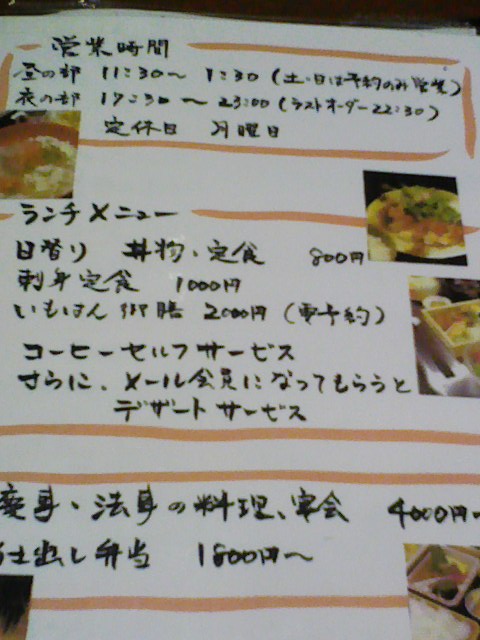 営業時間
昼の部 11:30〜 1:30 (土・日は予約のみ営業)
夜の部 17:30 〜 23:00 (ラストオーダー22:30)
定休日 月曜日
ランチメニュー
日替り 丼物・定食 800円
刺身定食 1000円
いもはん御膳 2000円 (要予約)
コーヒーセルフサービス
さらに、メール会員になってもらうと
デザートサービス
慶事・法事の料理、宴会 4000円〜
仕出し弁当 1800円〜